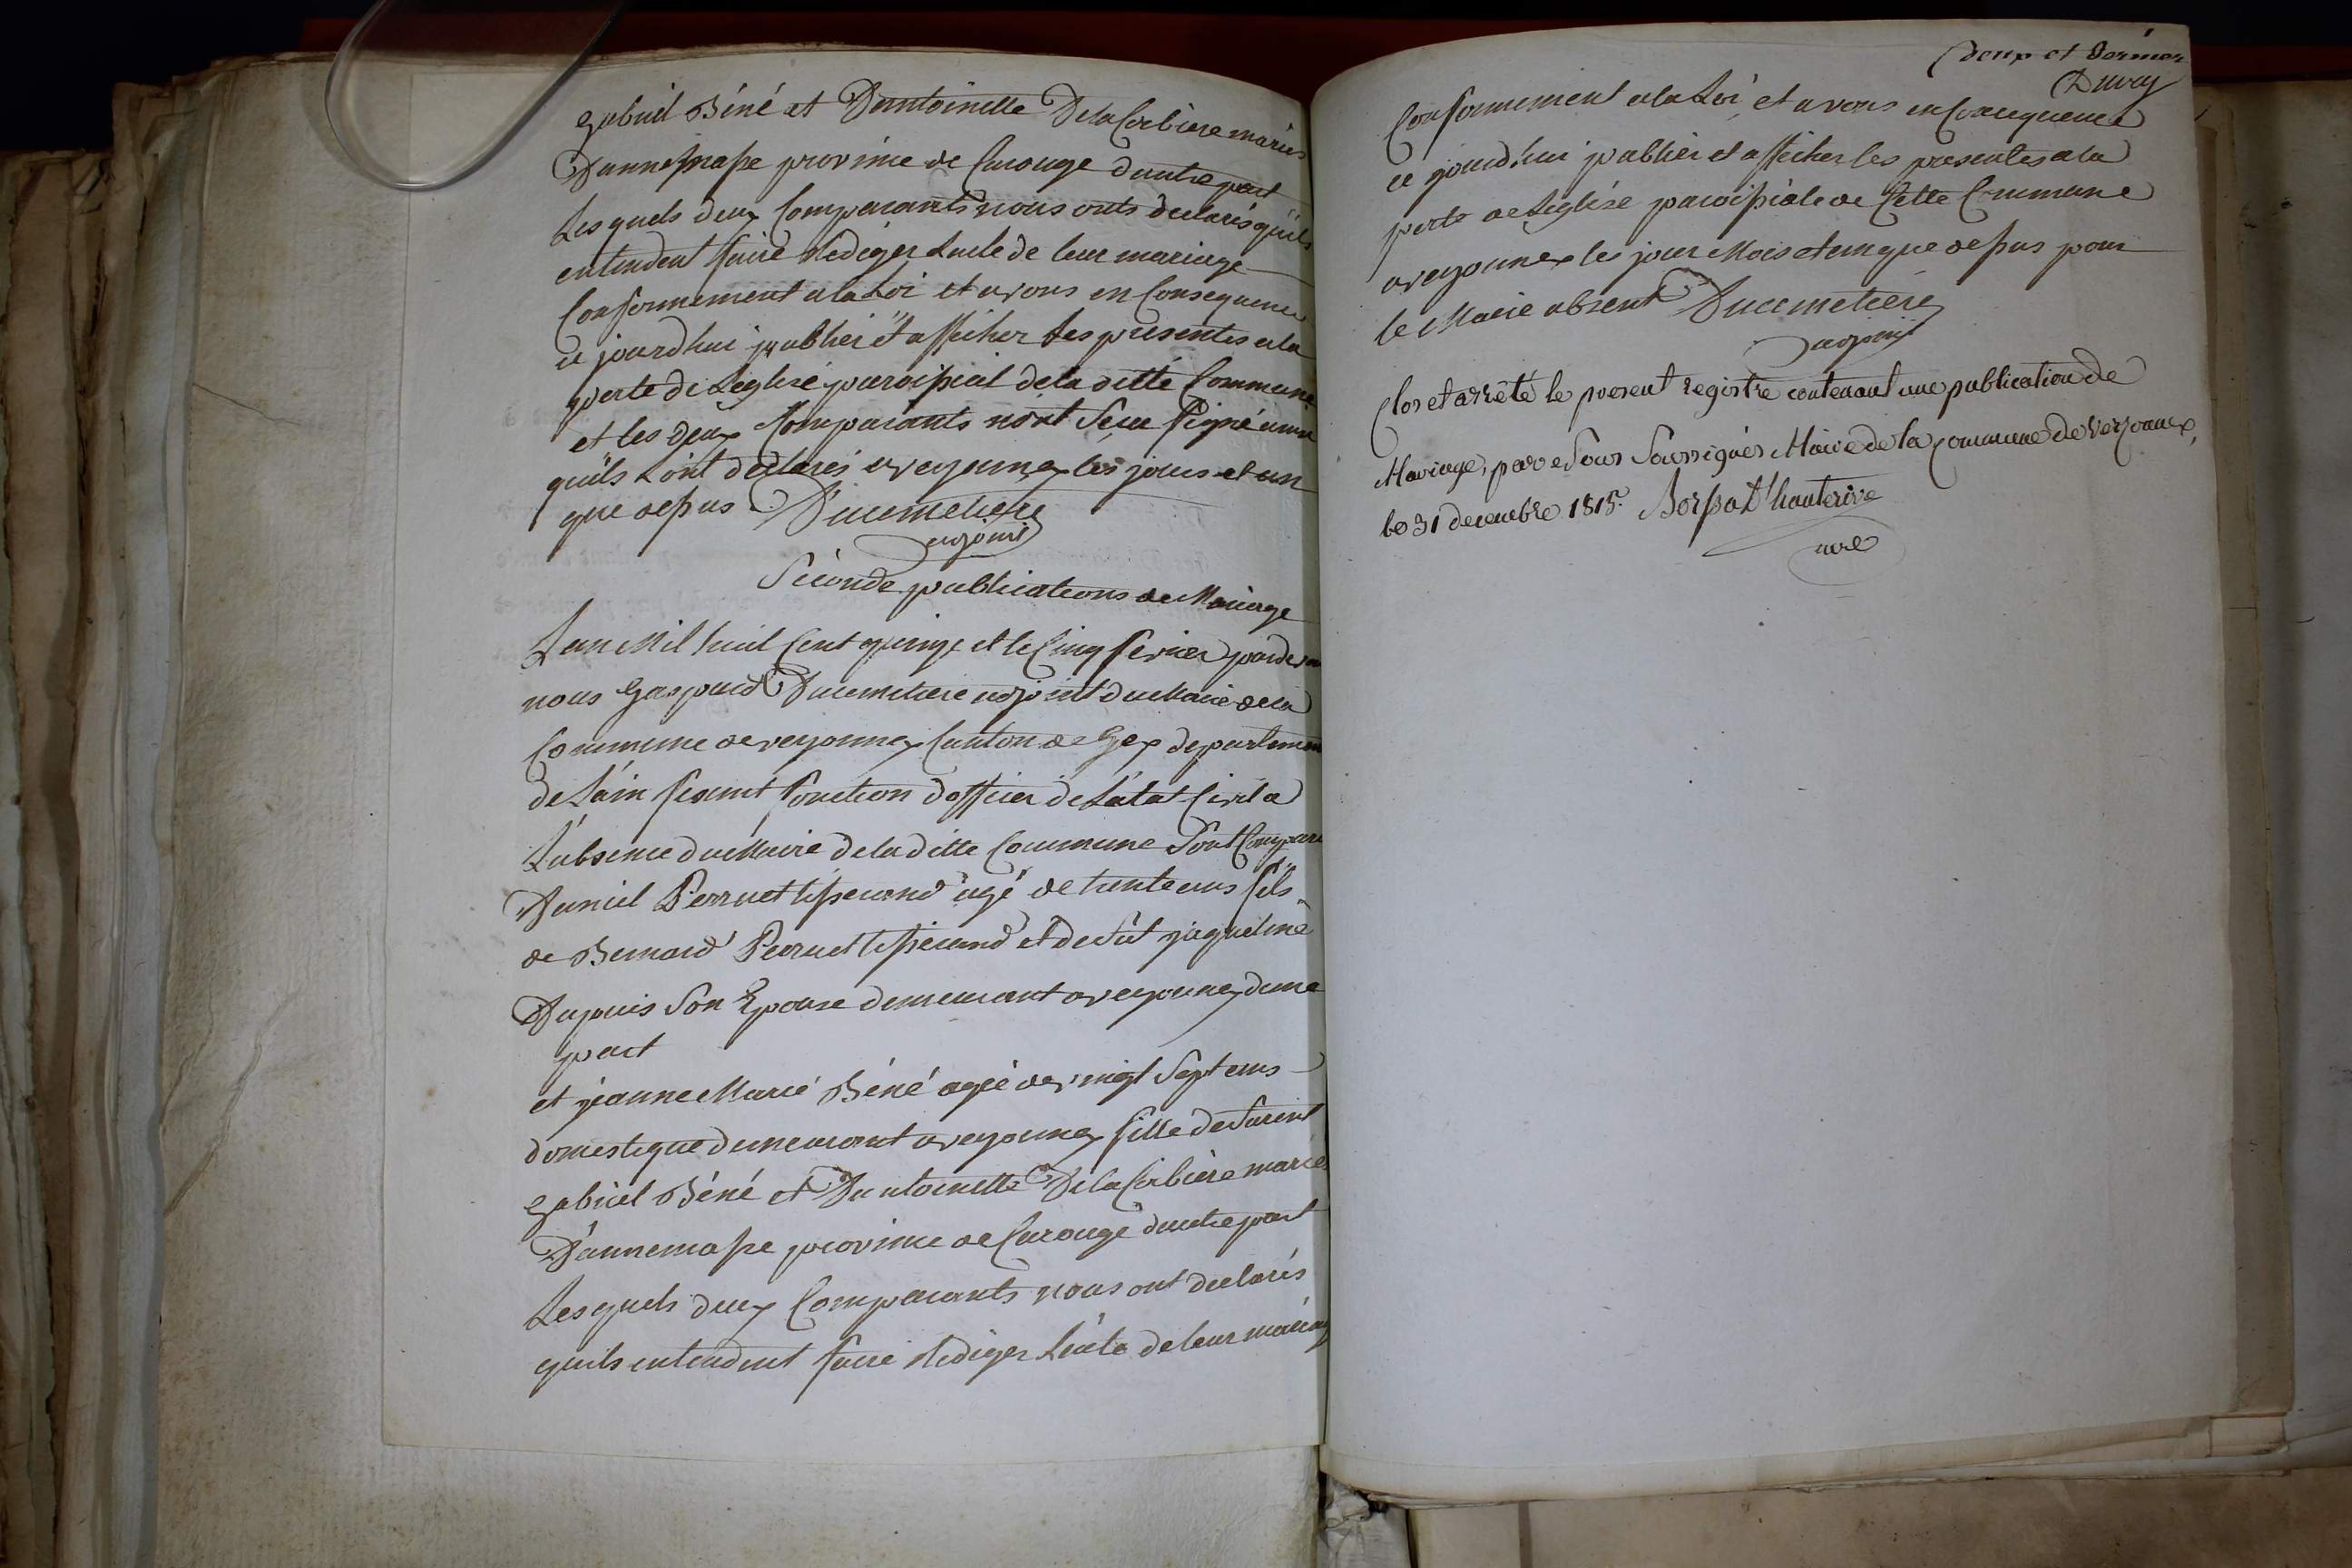 gabriel Béné et Dantoinette Dela Corbiere mariés
Dannemasse province de Carouge dautre part
Lesquels deux Comparants nous onts declarés quils
entendent faire Rediger Lacte de leur mariage
Conformement ala Loi et avons en Consequence
ce jourdhui publier et afficher Les presentes ala
porte de Leglise paroissial dela ditte Commune
et les deux Comparants nont Seu Signé
quils Lont declarés a veyonnex les jours et an
que dessus Ducimetiere
adjoint
Seconde publications de Mariage
Lan Mil huit Cent quinze et le Cinq fevrier pardevan
nous Gaspard Ducimetiere adjoint du Maire dela
Commune de veyonnex Canton de Gex departement
de Lain fesant fonction dofficier de Létat Civil a
Labsence du Maire dela ditte Commune Sont Compare
Daniel Perruet tisserand agé de trente ans fils
de Bernard Perruet tisserand et de fut jaqueline
Dupuis Son Epouse demeurant a veyonnex dune
part
et jeanne Marie Béné agée de vingt Sept ans
domestique demeurant a veyonnex fille de
gabriel Béné et Dantoinette Dela Corbiere marie
Dannemasse province de Carouge dautre part
Lesquels deux Comparants nous ont declarés
quils entendent faire Rediger Lacte de leur mariag
deux et dernier
Duvry
Conformement ala Loi et avons en Consequence
ce jourdhui publier et afficher les presentes ala
porte de Leglise paroissiale de Cette Commune
a veyonnex les jour Mois et an que dessus pour
le Maire absent Ducimetiere
adjoint
Clos et arrêté le present registre contenant une publication de
Mariage, par Nous Soussignés Maire de la Commune de Verzonnex,
le 31 decembre 1815. Borssat d'hauterive